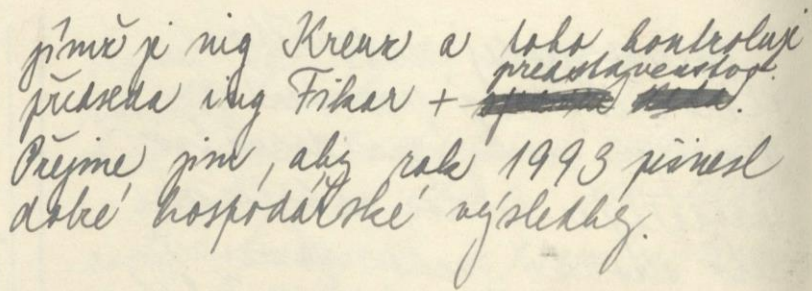 jímž je ing Kreuz a toho kontroluje
předseda ing Fikar + představenstvo.
Přejme jim, aby rok 1993 přinesl
dobré hospodářské výsledky.